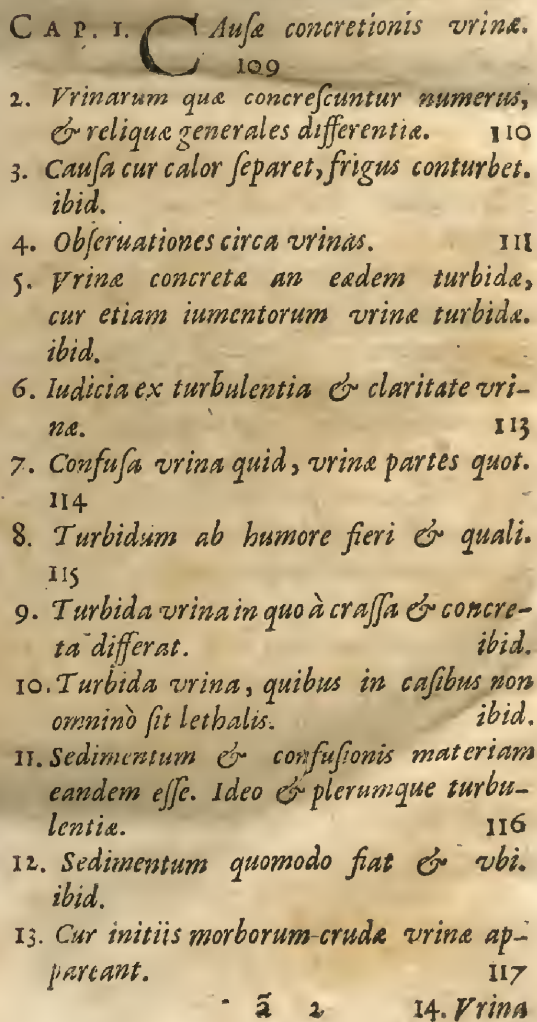 CAP. I. CAuſæ concretionis vrinæ.
109
2. Vrinarum quæ concreſcuntur numerus,
& reliquæ generales differentiæ. 110
3. Cauſa cur calor ſeparet, frigus conturbet.
ibid.
4. Obſeruationes circa vrinas. 111
5. Vrinæ concretæ an eædem turbidæ,
cur etiam iumentorum vrinæ turbidæ.
ibid.
6. Iudicia ex turbulentia & claritate vri-
næ. 113
7. Confuſa vrina quid, vrinæ partes quot.
114
8. Turbidum ab humore fieri & quali.
115
9. Turbida vrina in quo à craſſa & concre-
ta differat. ibid.
10. Turbida vrina, quibus in caſibus non
omninò ſit lethalis. ibid.
11. Sedimentum & confuſionis materiam
eandem eſſe. Ideo & plerumque turbu-
lentiæ. 116
12. Sedimentum quomodo fiat & vbi.
ibid.
13. Cur initiis morborum crudæ vrinæ ap-
pareant. 117
ã 2 14. Vrina